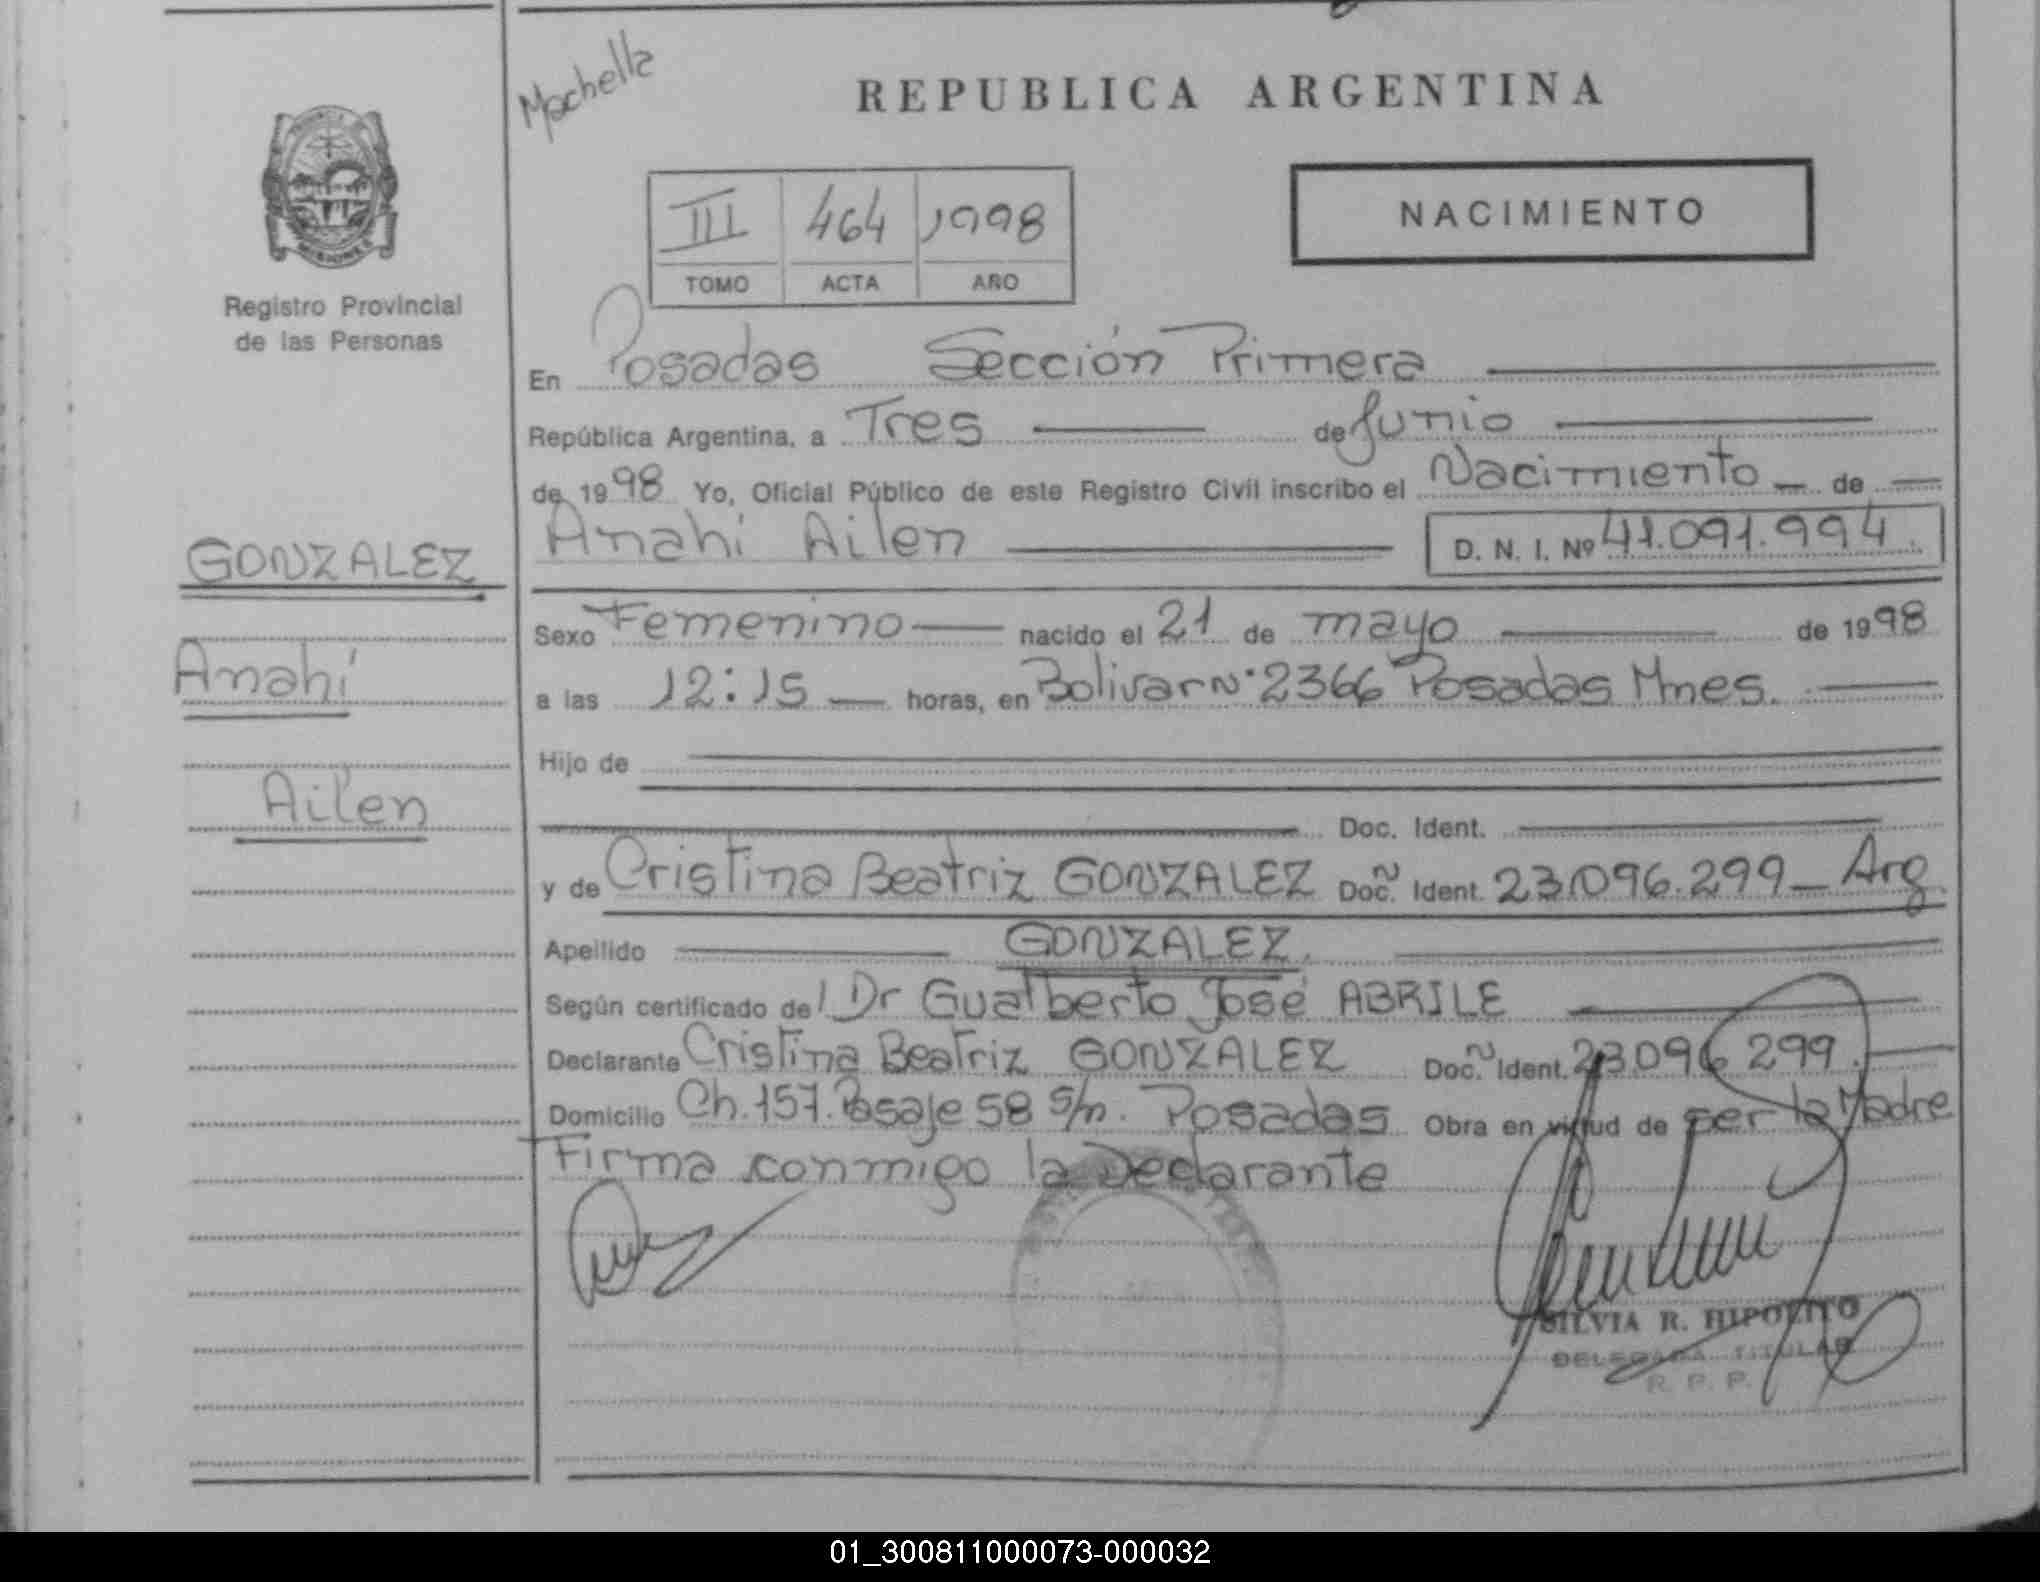 Machella
REPUBLICA ARGENTINA
MISIONES
Registro Provincial
de las Personas
III 464 1998
TOMO ACTA AÑO
NACIMIENTO
En Posadas Sección Primera
República Argentina, a Tres de Junio
de 1998 Yo, Oficial Público de este Registro Civil inscribo el Nacimiento de
Anahi Ailen D. N. I. Nº 41.091.994.
GONZALEZ
Anahí
Ailen
Sexo Femenino nacido el 21 de mayo de 1998
a las 12:15 horas, en Bolivar Nº 2366 Posadas Mnes.
Hijo de
Doc. Ident.
y de Cristina Beatriz GONZALEZ Doc. Ident. 23.096.299 Arg
Apellido GONZALEZ.
Según certificado del Dr Gualberto José ABRILE
Declarante Cristina Beatriz GONZALEZ Doc. Ident. 23096299.
Domicilio Ch. 157. Pasaje 58 s/n. Posadas Obra en virtud de ser la Madre
Firma conmigo la Declarante
SILVIA R. HIPOLITO
DELEGADA TITULAR
R. P. P.
01_300811000073-000032